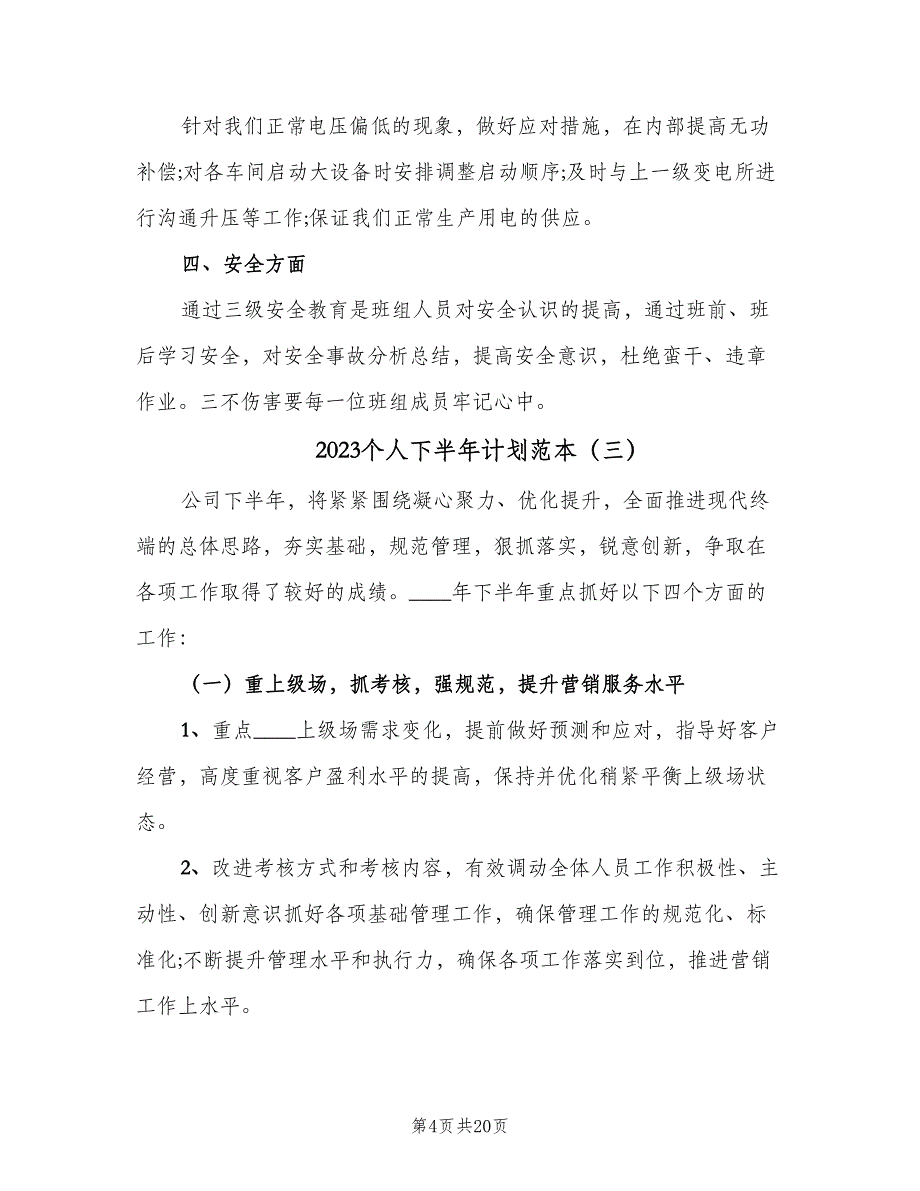 针对我们正常电压偏低的现象，做好应对措施，在内部提高无功
补偿;对各车间启动大设备时安排调整启动顺序;及时与上一级变电所进
行沟通升压等工作;保证我们正常生产用电的供应。
四、安全方面
通过三级安全教育是班组人员对安全认识的提高，通过班前、班
后学习安全，对安全事故分析总结，提高安全意识，杜绝蛮干、违章
作业。三不伤害要每一位班组成员牢记心中。
2023个人下半年计划范本（三）
公司下半年，将紧紧围绕凝心聚力、优化提升，全面推进现代终
端的总体思路，夯实基础，规范管理，狠抓落实，锐意创新，争取在
各项工作取得了较好的成绩。____年下半年重点抓好以下四个方面的
工作：
（一）重上级场，抓考核，强规范，提升营销服务水平
1、重点____上级场需求变化，提前做好预测和应对，指导好客户
经营，高度重视客户盈利水平的提高，保持并优化稍紧平衡上级场状
态。
2、改进考核方式和考核内容，有效调动全体人员工作积极性、主
动性、创新意识抓好各项基础管理工作，确保管理工作的规范化、标
准化;不断提升管理水平和执行力，确保各项工作落实到位，推进营销
工作上水平。
第4页共20页